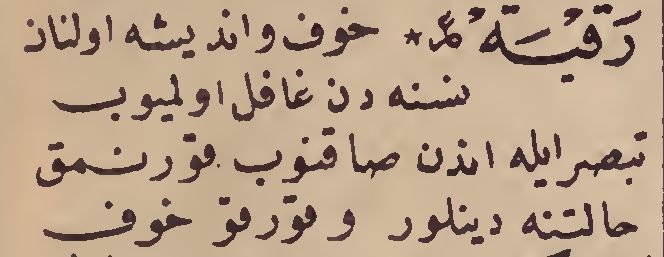 * خوف و انديشه اولنان
نسنه دن غافل اولميوب
تبصر ايله اندن صاقنوب قورنمق
حالتنه دينلور و قورقو خوف